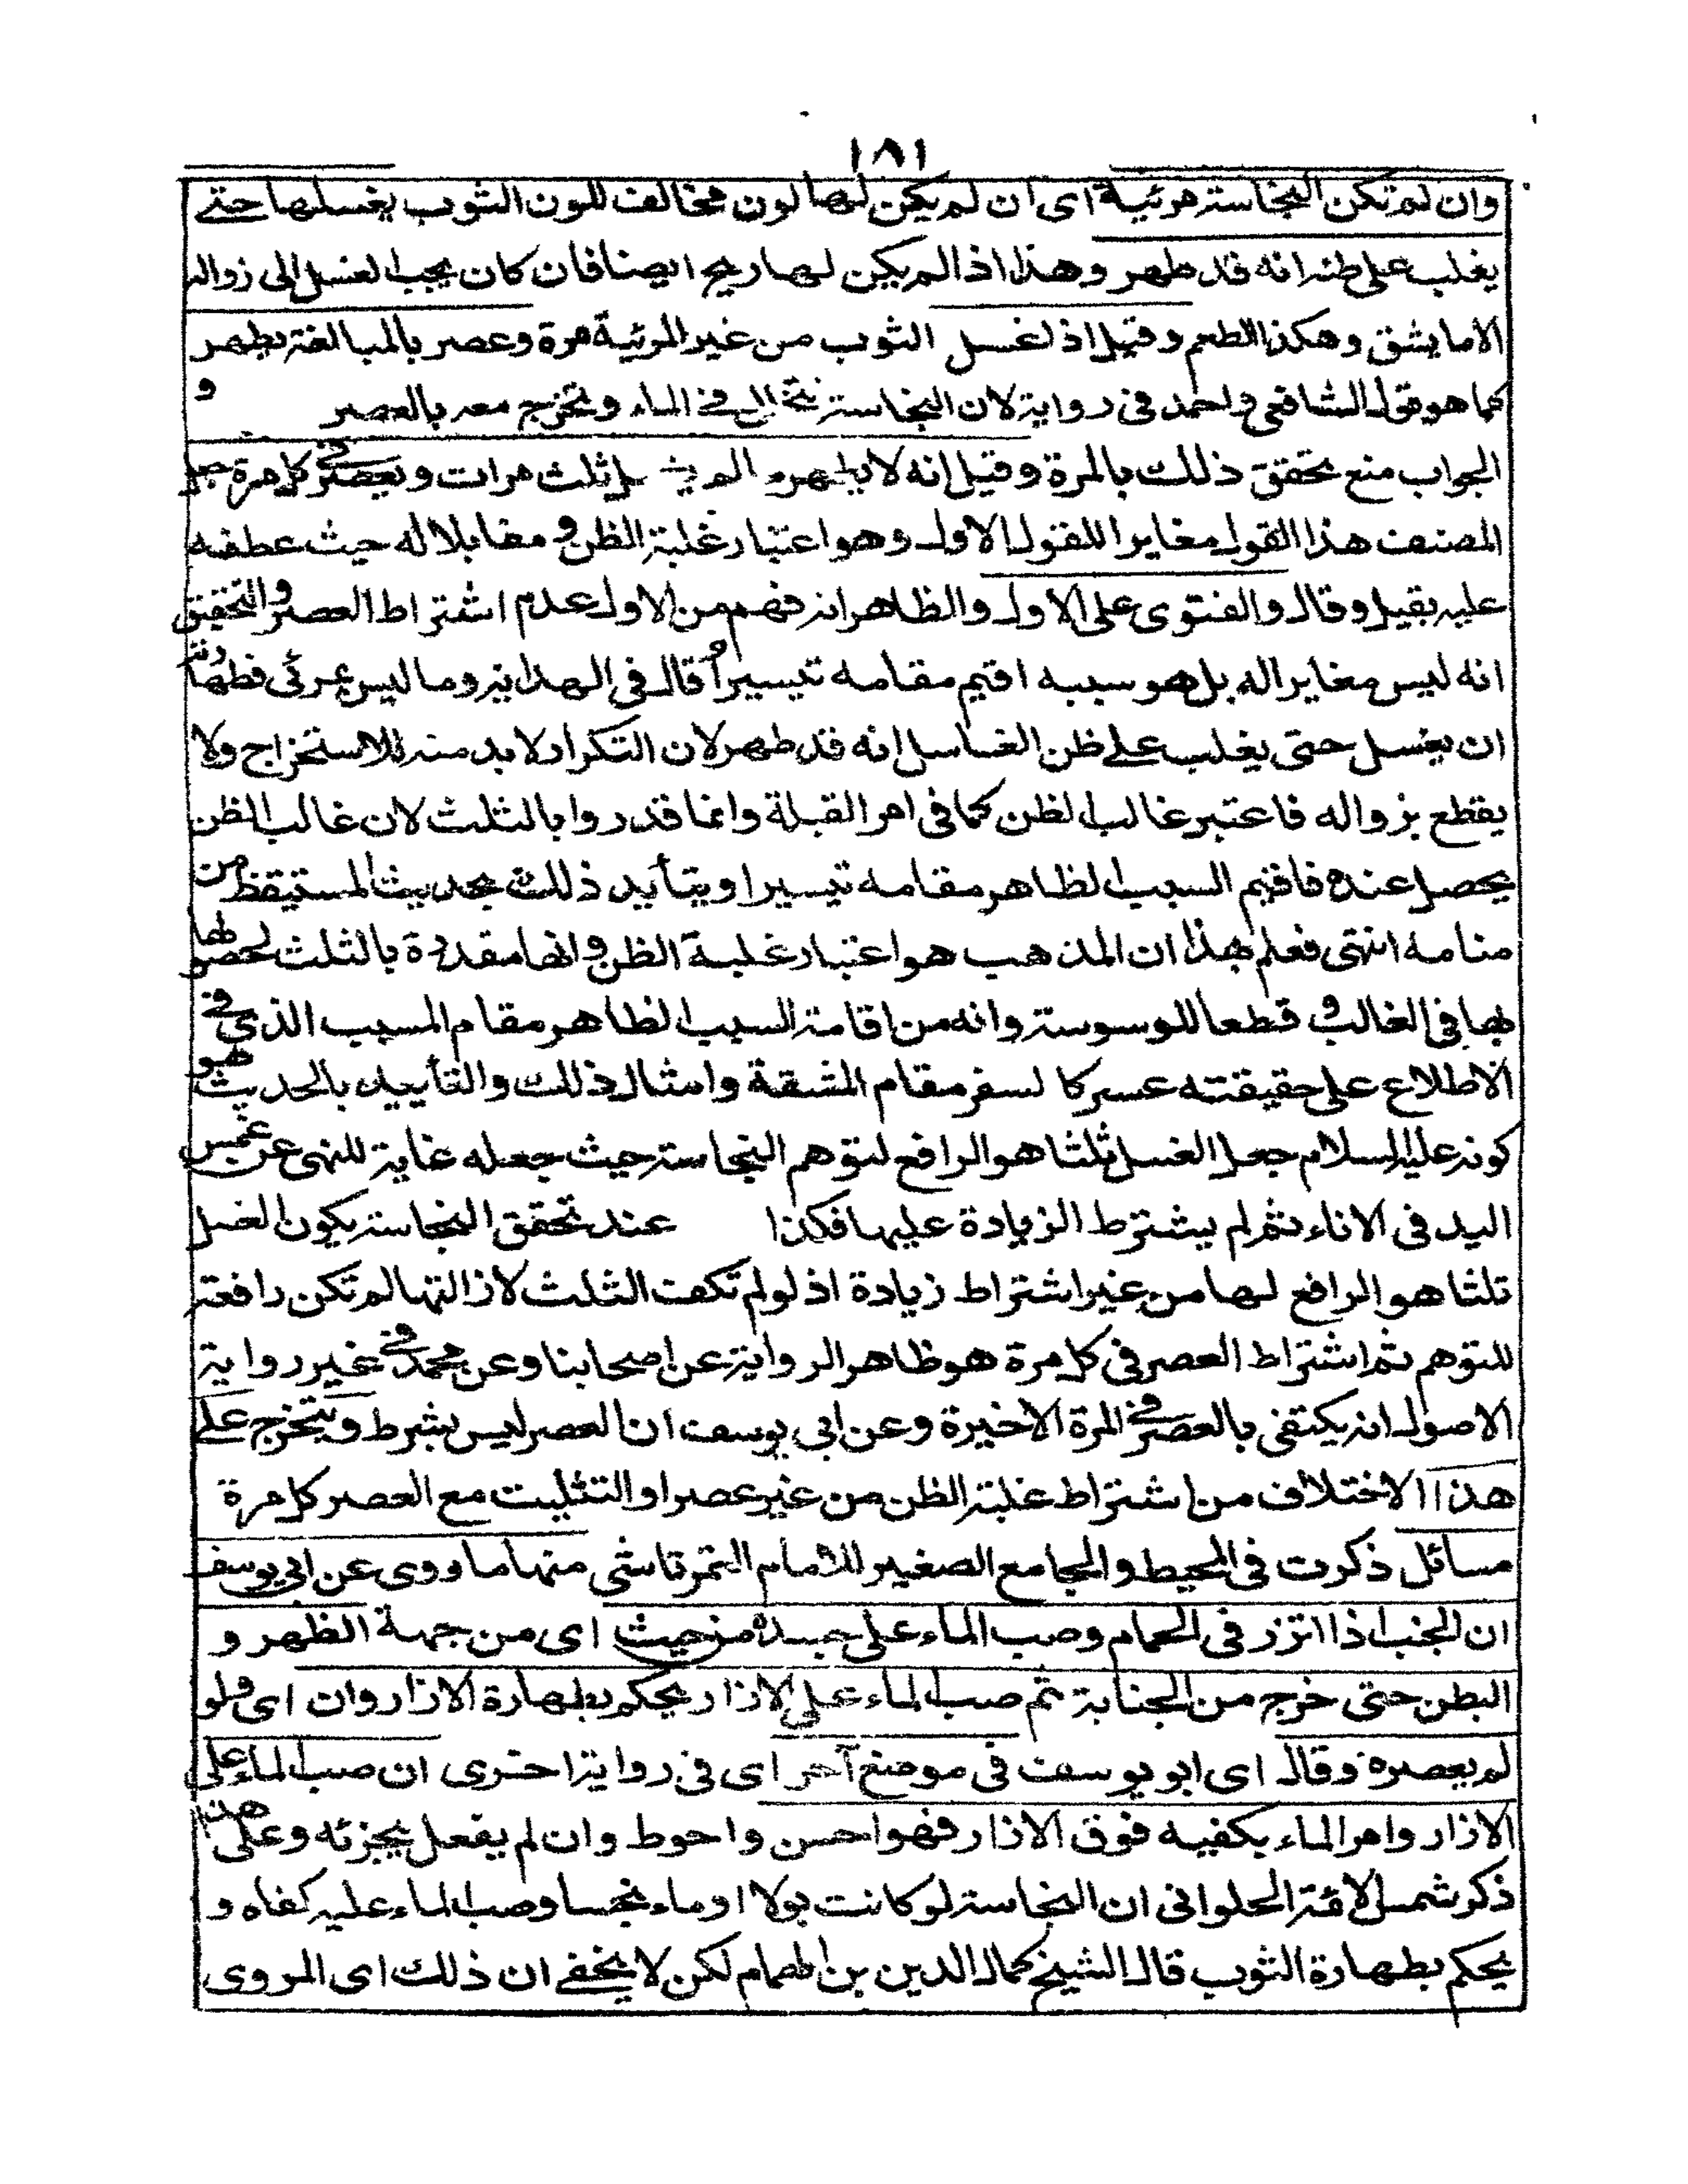 ١٨١
وان لم تكن النجاسة مرئية اى ان لم يكن لها لون مخالف للون الثوب يغسلها حتى
يغلب على ظنه انه قد طهر وهذا اذا لم يكن لها ريح ايضا فان كان يجب الغسل الى زواله
الا ما يشق وهكذا الطعم وقيل اذا غسل الثوب من غير المرئية مرة وعصر بالمبالغة يطهر
كما هو قول الشافعى واحمد فى رواية لان النجاسة فى الماء وتخرج معه بالعصر و
الجواب منع تحقق ذلك بالمرة وقيل انه لا يطهر ما لم يغسل ثلث مرات ويعصر فى كل مرة جعل
المصنف هذا القول مغايرا للقول الاول وهو اعتبار غلبة الظن و مقابلا له حيث عطفه
عليه بقيل وقال والفتوى على الاول والظاهر انه فهم من الاول عدم اشتراط العصر والتحقيق
انه ليس مغايرا له بل هو سببه اقيم مقامه تيسيرا و قال فى الهداية وما ليس بمرئى فطهارته
ان يغسل حتى يغلب على ظن الغاسل انه قد طهر لان التكرار لا بد منه للاستخراج ولا
يقطع بزواله فاعتبر غالب الظن كما فى امر القبلة وانما قدروا بالثلث لان غالب الظن
يحصل عنده فاقيم السبب الظاهر مقامه تيسيرا ويتأيد ذلك بحديث المستيقظ من
منامه انتهى فعلم بهذا ان المذهب هو اعتبار غلبة الظن و انها مقدرة بالثلث لحصولها
بها فى الغالب و قطعا للوسوسة وانه من اقامة السبب الظاهر مقام المسبب الذى فى
الاطلاع على حقيقته عسر كالسفر مقام المشقة وامثال ذلك والتأييد بالحديث هو
كونه عليه السلام جعل الغسل ثلثا هو الرافع لتوهم النجاسة حيث جعله غاية للنهى عن غمس
اليد فى الاناء ثم لم يشترط الزيادة عليها فكذا عند تحقق النجاسة يكون الغسل
ثلثا هو الرافع لها من غير اشتراط زيادة اذ لو لم تكف الثلث لازالتها لم تكن رافعة
للتوهم ثم اشتراط العصر فى كل مرة هو ظاهر الرواية عن اصحابنا وعن محمد فى غير رواية
الاصول انه يكتفى بالعصر فى المرة الاخيرة وعن ابى يوسف ان العصر ليس بشرط ويتخرج على
هذا الاختلاف من اشتراط غلبة الظن من غير عصر او التثليث مع العصر كل مرة
مسائل ذكرت فى المحيط والجامع الصغير للامام التمرتاشى منها ما روى عن ابى يوسف
ان الجنب اذا اتزر فى الحمام وصب الماء على جسده من حيث اى من جهة الظهر و
البطن حتى خرج من الجنابة ثم صب الماء على الازار يحكم بطهارة الازار وان اى ولو
لم يعصره وقال اى ابو يوسف فى موضع آخر اى فى رواية اخرى ان صب الماء على
الازار وامر الماء بكفيه فوق الازار فهو احسن واحوط وان لم يفعل يجزئه وعلى هذا
ذكر شمس الائمة الحلوانى ان النجاسة لو كانت بولا او ماء نجسا وصب الماء عليه كفاه و
يحكم بطهارة الثوب قال الشيخ كمال الدين بن الهمام لكن لا يخفى ان ذلك اى المروى